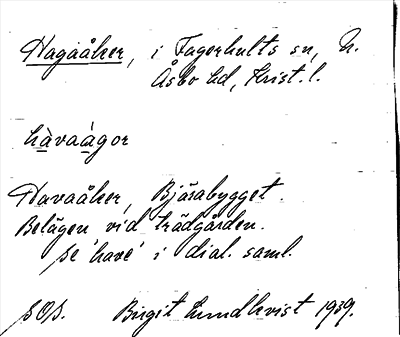 Hagaåker, i Fagerhults sn, N.
Åsbo hd, Krist. l.
hàvaàgor
Havaåker, Bjäsabygget.
Belägen vid trädgården.
se 'have' i dial. saml.
SOS. Birgit Lundkvist 1939.